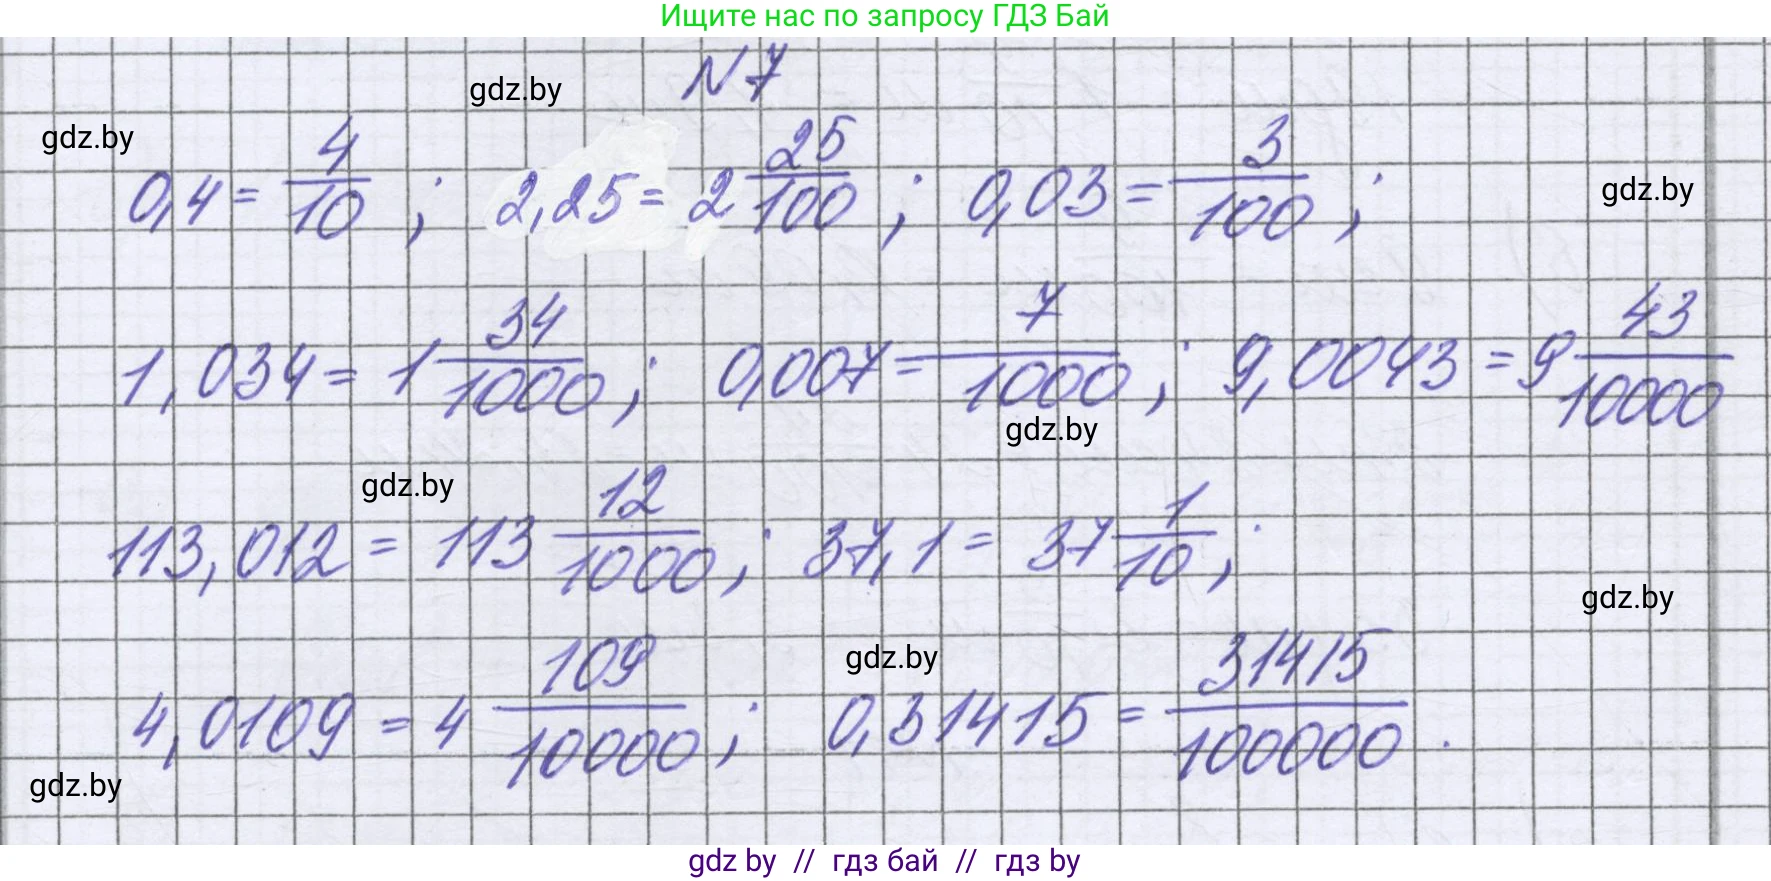 Ищите нас по запросу ГДЗ Бай
№7
gdz.by
gdz.by
0,4 = 4/10 ; 2,25 = 2 25/100 ; 0,03 = 3/100 ;
gdz.by
1,034 = 1 34/1000 ; 0,007 = 7/1000 ; 9,0043 = 9 43/10000
gdz.by
gdz.by
113,012 = 113 12/1000 ; 37,1 = 37 1/10 ;
gdz.by
gdz.by
4,0109 = 4 109/10000 ; 0,31415 = 31415/100000 .
gdz.by
gdz by // гдз бай // гдз by